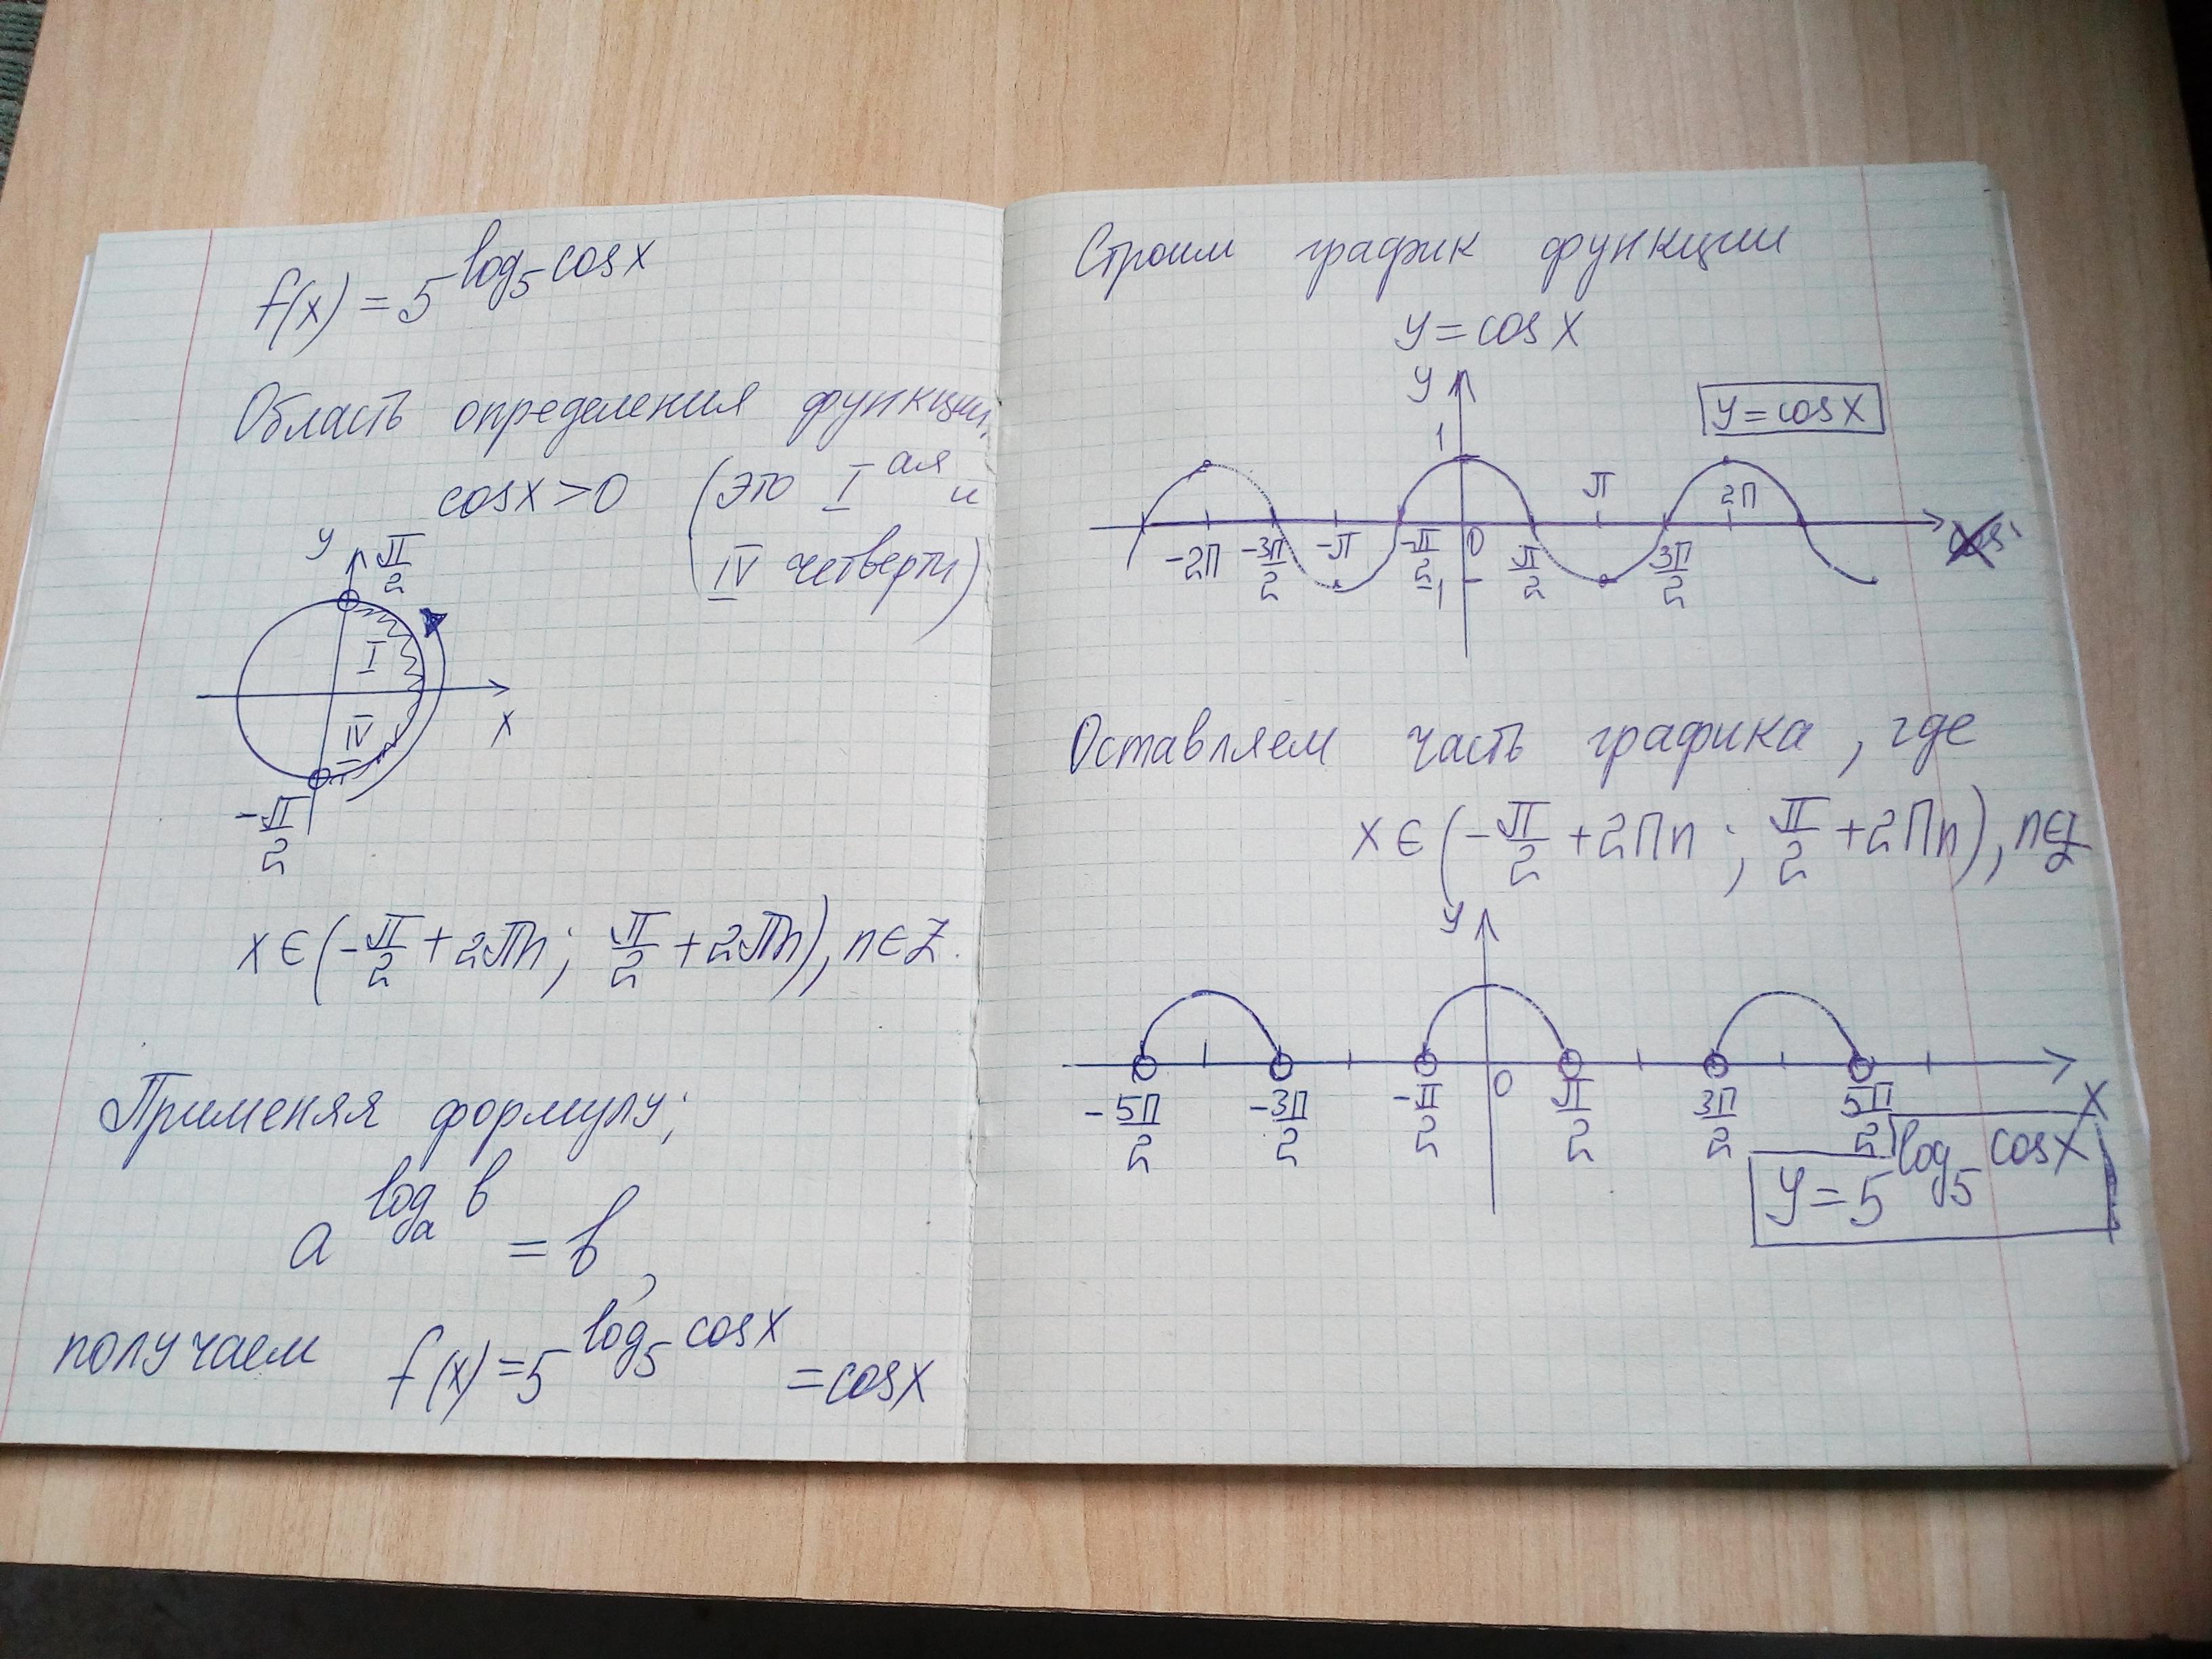 f(x) = 5^log₅ cos x
Область определения функции,
cos x > 0 (это I ая и
IV четверти)
y π/2
I
IV
x
-π/2
x ∈ (-π/2 + 2πn; π/2 + 2πn), n ∈ Z.
Применяя формулу;
a^logₐ b = b,
получаем f(x) = 5^log₅ cos x = cos x
Строим график функции
y = cos x
y
1
y = cos x
π 2π
-2π -3π/2 -π -π/2 0 π/2 3π/2
-1
Оставляем часть графика, где
x ∈ (-π/2 + 2πn; π/2 + 2πn), n ∈ Z
y
0
-5π/2 -3π/2 -π/2 π/2 3π/2 5π/2 x
y = 5^log₅ cos x